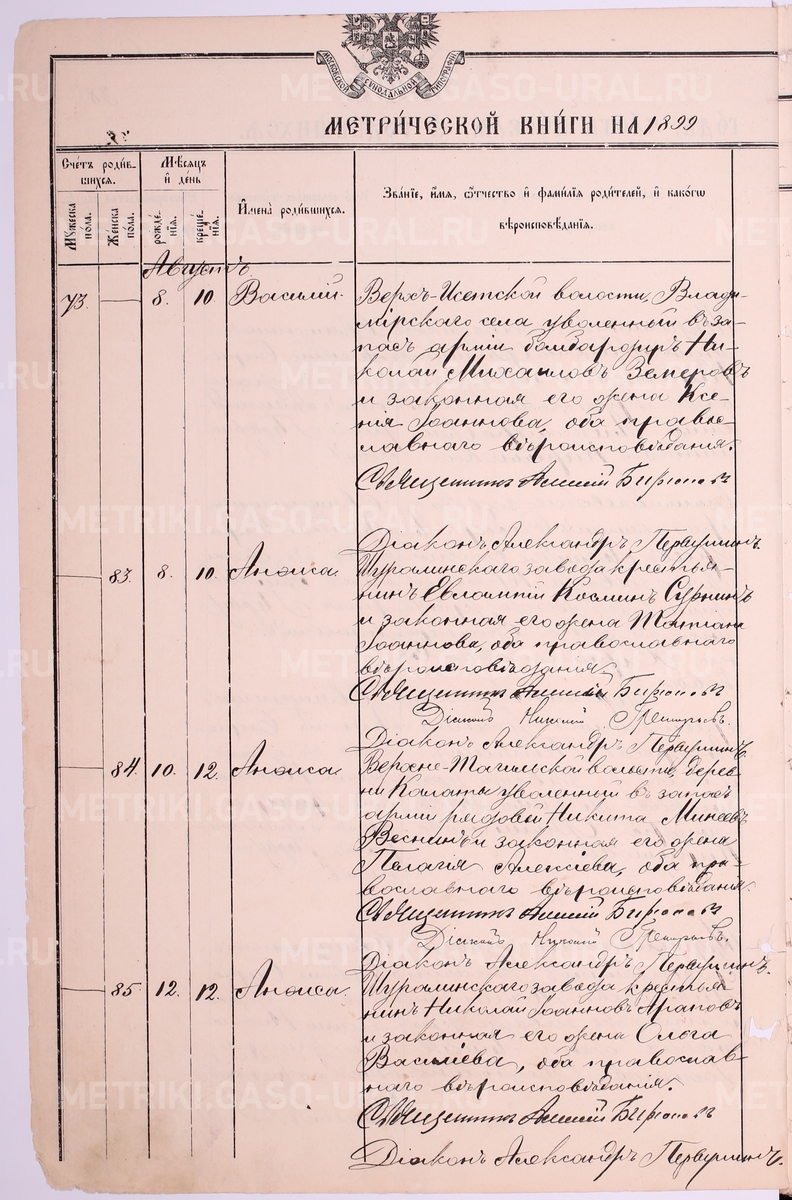 МОСКОВСКОЙ СѴНОДАЛЬНОЙ ТИПОГРАФІИ
МЕТРИ́ЧЕСКОЙ КНИ́ГИ НА 1899
Сче́тъ роди́в-
шихся.
Му́жеска
пола.
Же́нска
пола.
Мѣ́сяцъ
и҆ де́нь
рожде́-
нїѧ.
креще́-
нїѧ.
И҆мена̀ роди́вшихся.
Зва́нїе, и҆́мя, ѻ҆́тчество и҆ фами́лїѧ роди́телей, и҆ како́гѡ
вѣроисповѣ́данїѧ.
Августъ
73. 8. 10 Василій. Верхъ-Исетской волости, Влади-
мірскаго села уволенный въ за-
пасъ арміи бомбардиръ Ни-
колай Михаиловъ Земеровъ
и законная его жена Ксе-
нія Іоаннова, оба право-
славнаго вѣроисповѣданія.
Священникъ Алексій
Діаконъ Александръ Первушинъ.
83. 8. 10. Анѳиса Шуралинскаго завода крестья-
нинъ Евлампій Косминъ Сурнинъ
и законная его жена Татіана
Іоаннова, оба православнаго
вѣроисповѣданія
Священникъ Алексій
Діаконъ Александръ Первушинъ.
84. 10. 12. Анѳиса Верхне-Тагильской волости, дерев-
ни Калаты уволенный въ запасъ
арміи рядовой Никита Минеевъ
Веснинъ и законная его жена
Пелагія Алексіева, оба пра-
вославнаго вѣроисповѣданія.
Священникъ Алексій
Діаконъ Александръ Первушинъ.
85 12. 12. Анѳиса. Шуралинскаго завода крестья-
нинъ Николай Іоанновъ Араповъ
и законная его жена Ольга
Василіева, оба православ-
наго вѣроисповѣданія.
Священникъ Алексій
Діаконъ Александръ Первушинъ.
METRIKI.GASO-URAL.RU